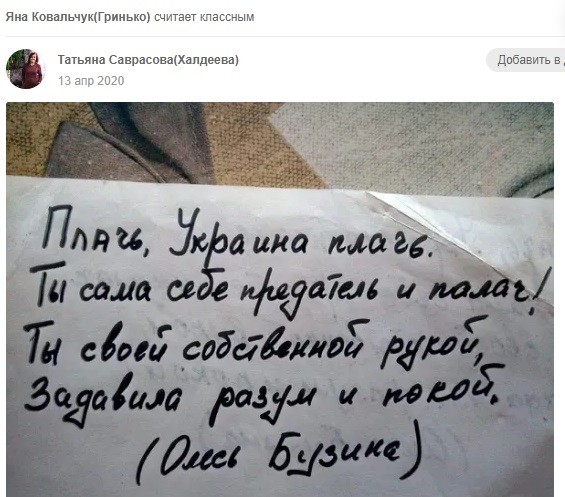 Яна Ковальчук(Гринько) считает классным
Татьяна Саврасова(Халдеева)
Добавить в
13 апр 2020
Плачь, Украина плачь.
Ты сама себе предатель и палач!
Ты своей собственной рукой,
Задавила разум и покой.
(Олесь Бузина)